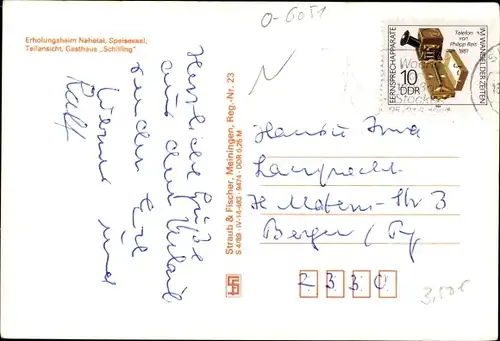 O-6051
Erholungsheim Nahetal, Speisesaal,
Teilansicht, Gasthaus „Schilling"
Herzliche Grüße
aus dem Urlaub
senden Euch
Werner und
Ralf
Straub & Fischer, Meiningen, Reg.-Nr. 23
S 4/89 · IV-14-483 · 9474 · DDR 0,25 M
FERNSPRECHAPPARATE
IM WANDEL DER ZEITEN
Telefon
von
Philipp Reis
1861
10
DDR
Lamprecht
H.-Matern-Str 3
Bergen / Rg.
2 3 3 0